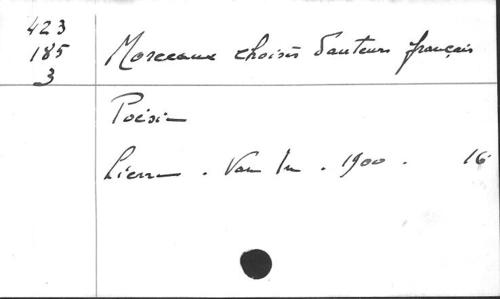 423
185
3
Morceaux choisis d'auteurs français
Poésie
Lierre . Van In . 1900 . 16